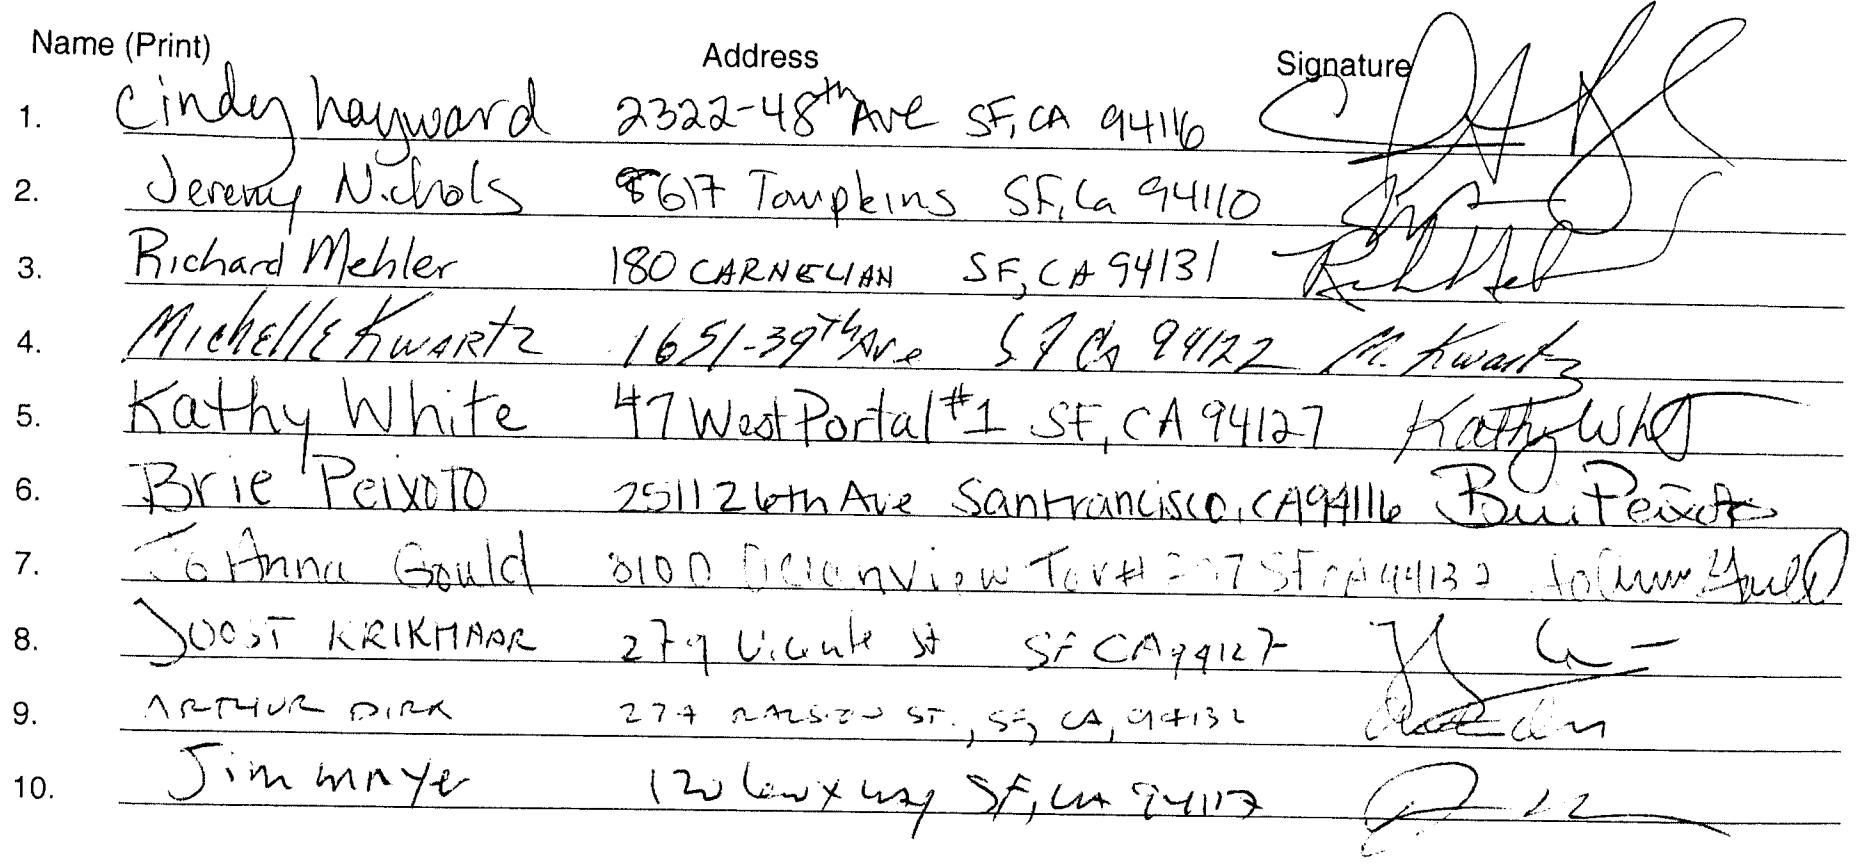 Name (Print) Address Signature
1. Cindy Hayward 2322-48th Ave SF, CA 94116
2. Jeremy Nichols 8617 Tompkins SF, Ca 94110
3. Richard Mehler 180 CARNELIAN SF, CA 94131
4. MichellE KWARTz 1651-39th Ave S F Ca 94122 M. Kwartz
5. Kathy White 47 West Portal #1 SF, CA 94127 Kathy Wht
6. Brie Peixoto 2511 26th Ave San Francisco, CA 94116 Brie Peixoto
7. JoAnna Gould SF CA 94132 JoAnna Gould
8. JOOST KRIKHAAR 279 Vicente St SF CA 94127
9. ARTHUR DIRK 274 RALSTON ST., SF, CA, 94132
10. Jim mayer 120 Lenox way SF, CA